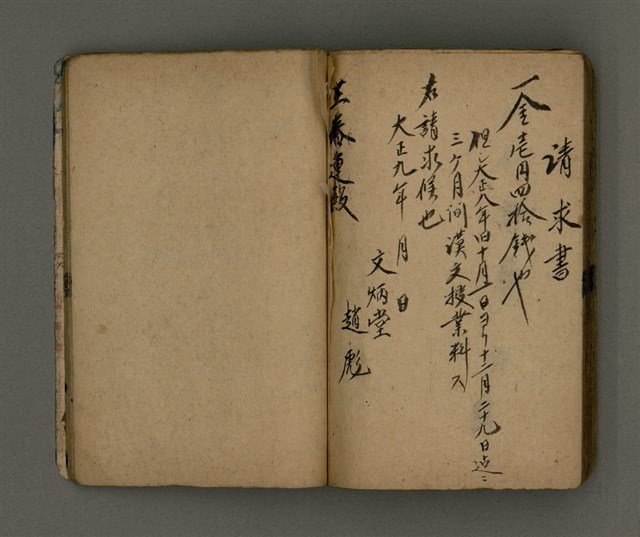 請求書
一金壱円四拾銭也
但シ大正八年旧十月一日ヨリ十二月二十九日迠ニ
三ケ月间漢文授業料ス
右請求候也
大正九年 月 日
文炳堂
趙彪